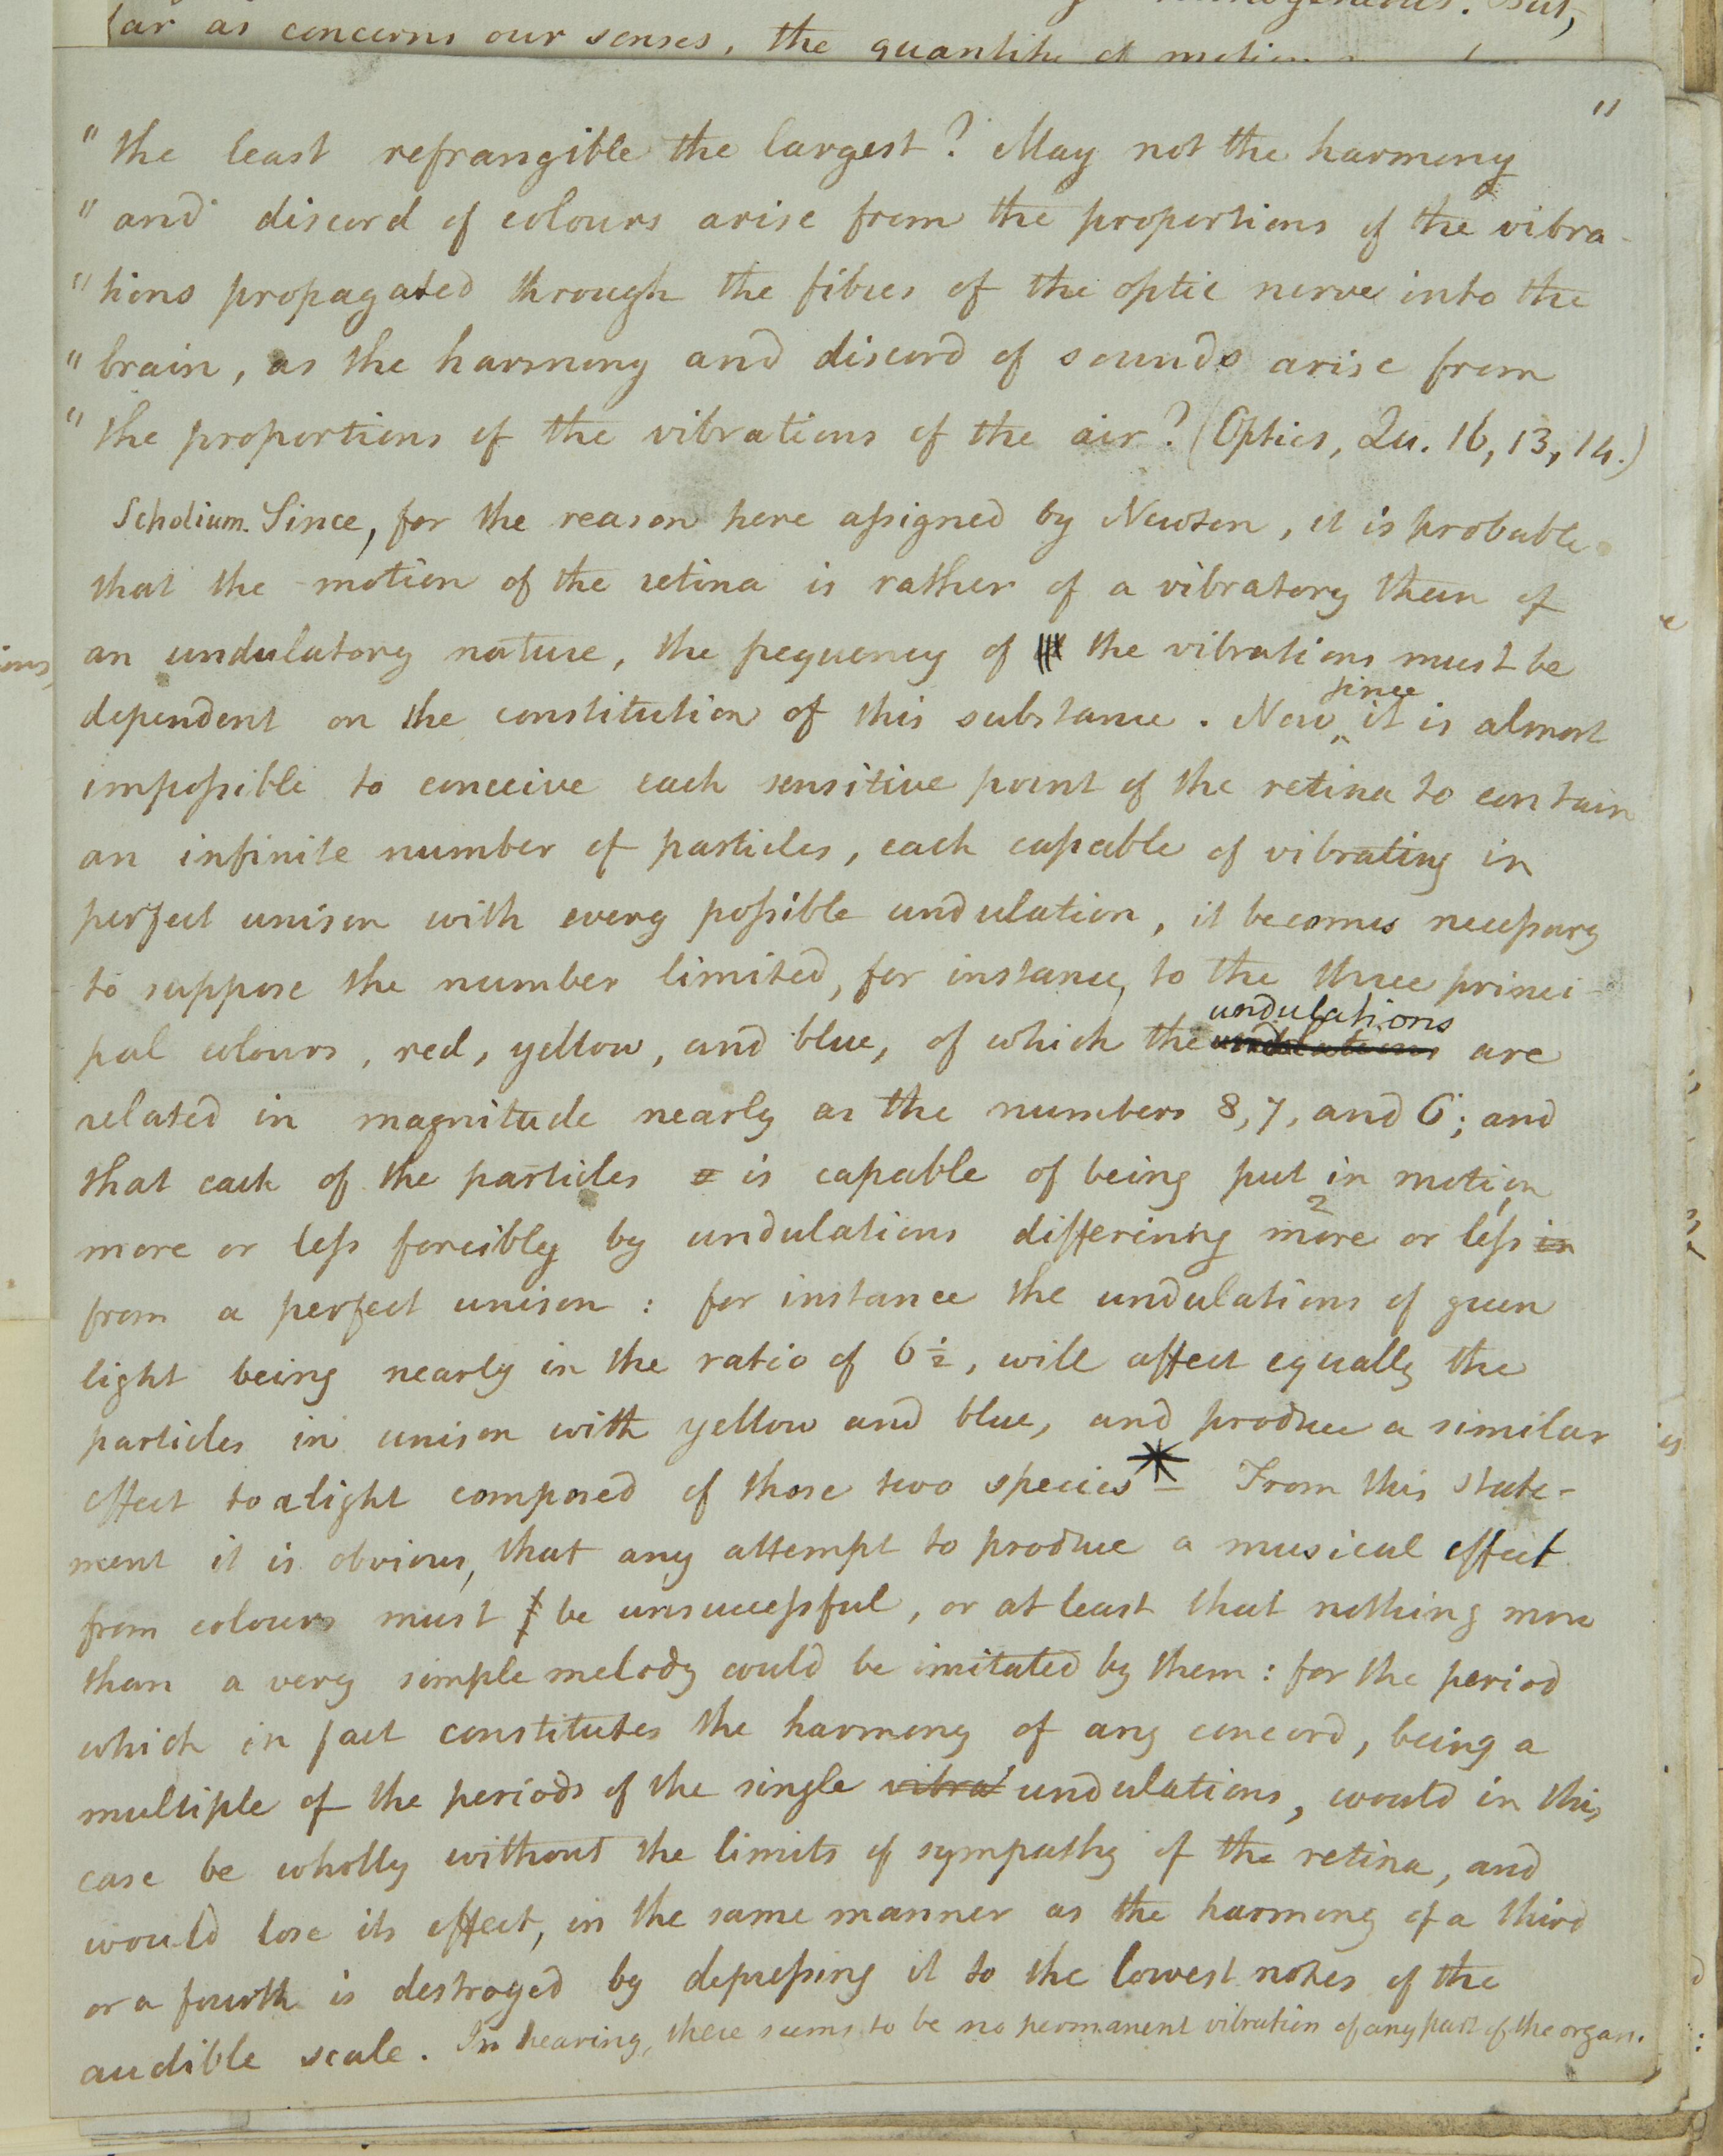 far as concerns our senses, the quantity of motion
"
" the least refrangible the largest? May not the harmony
" and discord of colours arise from the proportions of the vibra-
" tions propagated through the fibres of the optic nerve into the
" brain, as the harmony and discord of sounds arise from
" the proportions of the vibrations of the air? (Optics, Qu. 16, 13, 14.)
Scholium. Since, for the reason here assigned by Newton, it is probable
that the motion of the retina is rather of a vibratory than of
an undulatory nature, the frequency of the vibrations must be
since
dependent on the constitution of this substance. Now ^ it is almost
impossible to conceive each sensitive point of the retina to contain
an infinite number of particles, each capable of vibrating in
perfect unison with every possible undulation, it becomes necessary
to suppose the number limited, for instance, to the three princi-
undulations
pal colours, red, yellow, and blue, of which the undulations are
related in magnitude nearly as the numbers 8, 7, and 6; and
that each of the particles is capable of being put in motion
2 1
more or less forcibly by undulations differining more or less in
from a perfect unison: for instance the undulations of green
light being nearly in the ratio of 6½, will affect equally the
particles in unison with yellow and blue, and produce a similar
effect to a light composed of those two species * — From this state-
ment it is obvious, that any attempt to produce a musical effect
from colours must be unsuccessful, or at least that nothing more
than a very simple melody could be imitated by them: for the period
which in fact constitutes the harmony of any concord, being a
multiple of the periods of the single vibra undulations, would in this
case be wholly without the limits of sympathy of the retina, and
would lose its effect, in the same manner as the harmony of a third
or a fourth is destroyed by depressing it to the lowest notes of the
audible scale. In hearing, there seems to be no permanent vibration of any part of the organ.